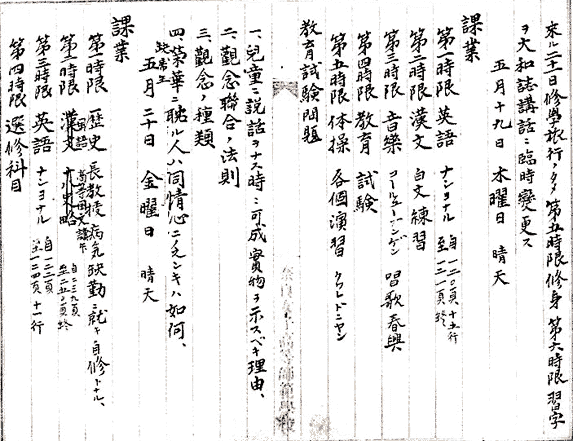 来ル二十日修學旅行ノタメ第五時限修身第六時限習字
ヲ大和誌講話ニ臨時變更ス
五月十九日 木曜日 晴天
課業
第一時限 英語 ナショナル 自一二〇頁十五行 至一二一頁終
第二時限 漢文 白文練習
第三時限 音樂 コールユーブンゲン 唱歌春興
第四時限 教育 試験
第五時限 体操 各個演習 クワドリーヤン
教育試驗問題
一、兒童ニ説話ヲナス時ニ可成實物ヲ示スベキ理由、
二、觀念聯合ノ法則
三、觀念ノ種類
四、榮華ニ耽ル人ハ同情心ニ乏シキハ如何、
五月二十日 金曜日 晴天
課業
第一時限 歴史 長教授病気缺勤ニ就キ自修トナル、
第二時限 國語
第三時限 英語 ナショナル 自一二三頁 至一二四頁十一行
第四時限 選修科目